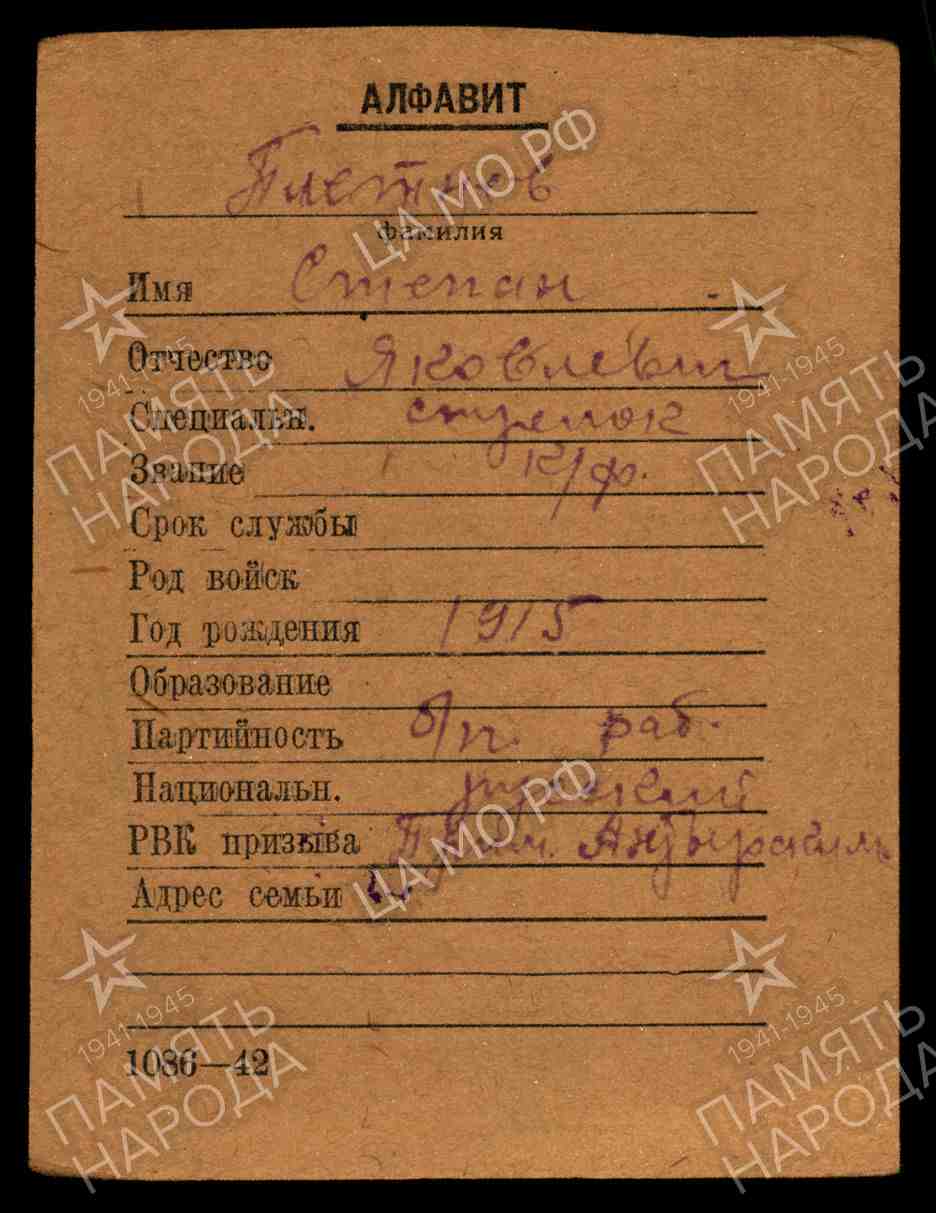 АЛФАВИТ
фамилия
Имя Степан
Отчество Яковлевич
Специальн. стрелок
Звание к/ф.
Срок службы
Род войск
Год рождения 1915
Образование
Партийность б/п. раб.
Национальн. русский
РВК призыва
Адрес семьи
1086—42
ЦА МО РФ
1941-1945
ПАМЯТЬ
НАРОДА
1941-1945
ПАМЯТЬ
НАРОДА
ЦА МО РФ
1941-1945
ПАМЯТЬ
НАРОДА
1941-1945
ПАМЯТЬ
НАРОДА